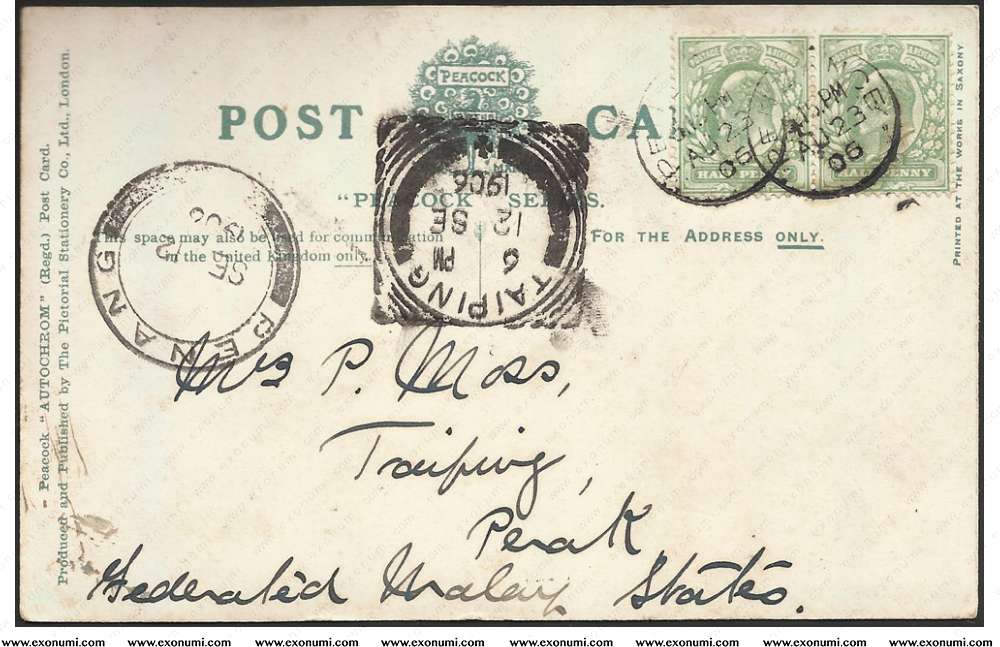 PEACOCK
POST CARD
"PEACOCK" SERIES.
This space may also be used for communication
in the United Kingdom only.
FOR THE ADDRESS ONLY.
- Peacock "AUTOCHROM" (Regd.) Post Card.
Produced and Published by The Pictorial Stationery Co., Ltd., London.
PRINTED AT THE WORKS IN SAXONY.
HALF PENNY
HALF PENNY
AU 23
06
PM
AU 23
06
PENANG
SE
TAIPING
6 PM
12 SE
1906
Mrs P. Moss,
Taiping,
Perak
Federated Malay States.
www.exonumi.com www.exonumi.com www.exonumi.com www.exonumi.com www.exonumi.com www.exonumi.com www.exonumi.com www.exonumi.com